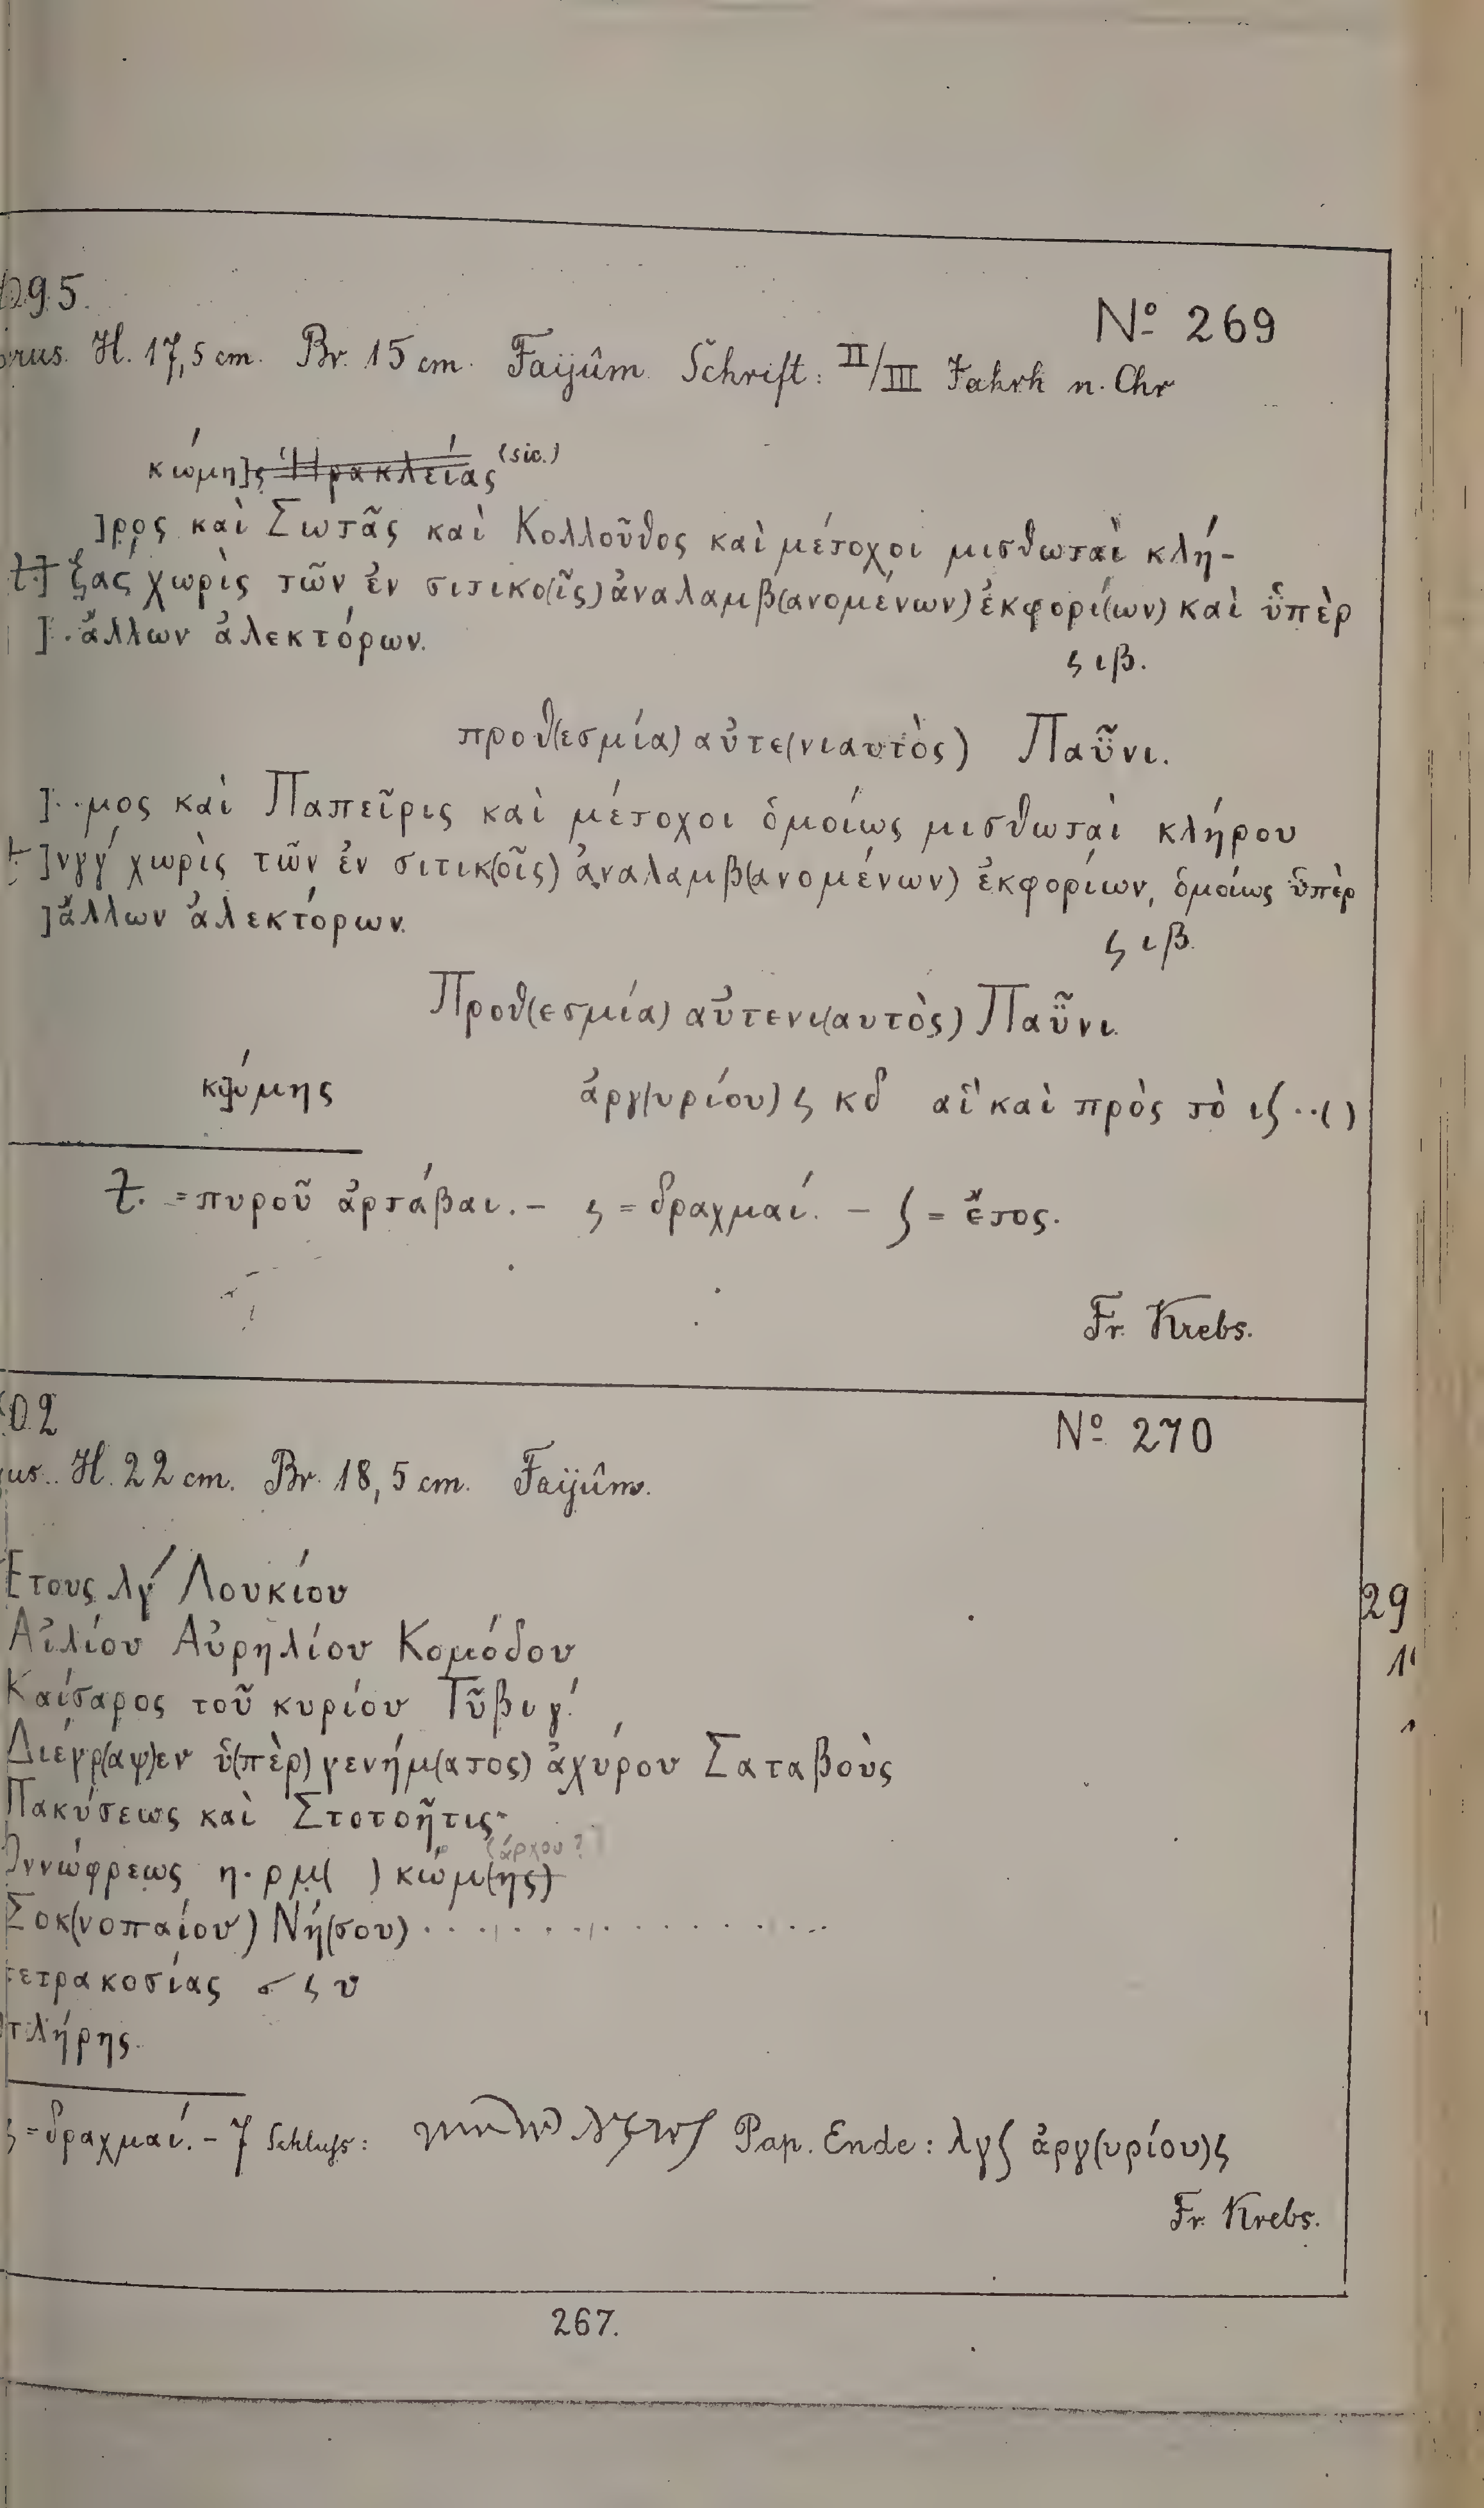 95.
Nº 269
H. 17,5 cm. Br. 15 cm. Faijûm. Schrift: II/III Jahrh n. Chr
κώμη]ς Ἡρακλείας (sic.)
]ρος καὶ Σωτᾶς καὶ Κολλοῦθος καὶ μέτοχοι μισθωταὶ κλή-
]ξας χωρὶς τῶν ἐν σιτικο(ῖς) ἀναλαμβ(ανομένων) ἐκφορί(ων) καὶ ὑπὲρ
]. ἄλλων ἀλεκτόρων.
ς ιβ.
προθ(εσμία) αὐτε(νιαυτὸς) Παῧνι.
]..μος καὶ Παπεῖρις καὶ μέτοχοι ὁμοίως μισθωταὶ κλήρου
]νγγ´ χωρὶς τῶν ἐν σιτικ(οῖς) ἀναλαμβ(ανομένων) ἐκφορίων, ὁμοίως ὑπὲρ
]ἄλλων ἀλεκτόρων.
ς ιβ.
Προθ(εσμία) αὐτενι(αυτὸς) Παῧνι.
κ]ώμης ἀργ(υρίου) ς κδ αἳ καὶ πρὸς τὸ ιζ ..( )
= πυροῦ ἀρτάβαι. – ς = δραχμαί. – ʃ = ἔτος.
Fr. Krebs.
02
Nº 270
H. 22 cm. Br. 18,5 cm. Faijûm.
Ἔτους λγ´ Λουκίου
Αἰλίου Αὐρηλίου Κομόδου
Καίσαρος τοῦ κυρίου Τῦβι γ´.
Διέγρ(αψ)εν ὑ(πὲρ) γενήμ(ατος) ἀχύρου Σαταβοὺς
Πακύσεως καὶ Στοτοῆτις
(άρχου?)
Ὀννώφρεως η.ρμ( ) κώμ(ης)
Σοκ(νοπαίου) Νή(σου) . . . . . . . . . . . .
τετρακοσίας ς υ
πλήρης.
ς = δραχμαί. – 7 Schluß: Pap. Ende: λγʃ ἀργ(υρίου) ς
Fr. Krebs.
267.
29